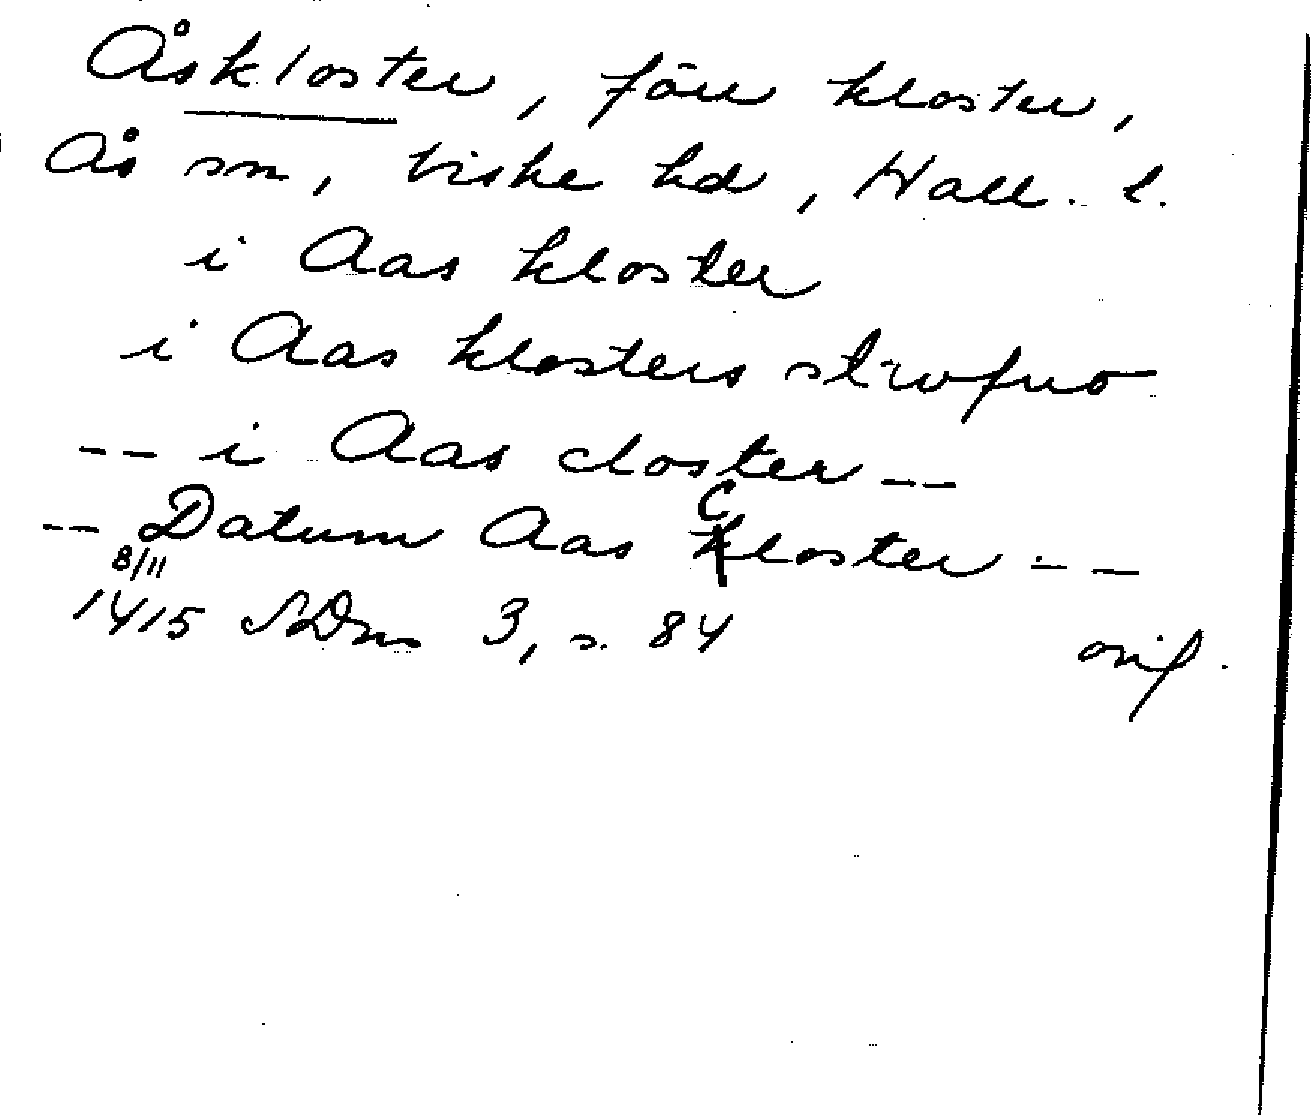 Åskloster, förr kloster,
Ås sn, Viske hd, Hall. l.
i Aas kloster
i Aas klosters stwfuo
-- i Aas closter --
-- Datum Aas Closter --
8/11
1415 SDns 3, s. 84 orig.